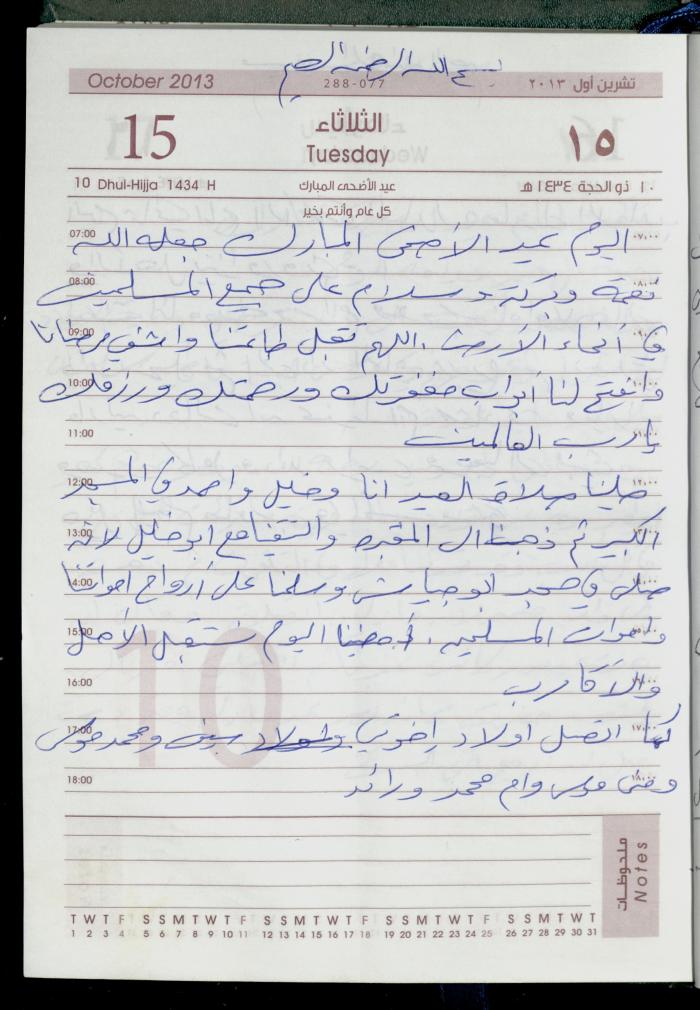 بسم الله الرحمن الرحيم
October 2013 288-077 تشرين أول ٢٠١٣
15 الثلاثاء ١٥
Tuesday
10 Dhul-Hijja 1434 H عيد الأضحى المبارك ١٠ ذو الحجة ١٤٣٤ هـ
كل عام وأنتم بخير
07:00 اليوم عيد الأضحى المبارك جعله الله ٠٧:٠٠
08:00 نعمة وبركة وسلام على جميع المسلمين ٠٨:٠٠
09:00 في أنحاء الأرض، اللهم تقبل طاعتنا واشفي مرضانا
10:00 وافتح لنا أبواب مغفرتك ورحمتك ورزقك
11:00 يارب العالمين
12:00 صلينا صلاة العيد انا وخليل واحمد في المسجد ١٢:٠٠
13:00 الكبير ثم ذهبنا الى المقبره والتقينا مع ابو خليل لانه
14:00 صلى في مسجد ابو جياش وسلمنا على أرواح امواتنا
15:00 واموات المسلمين، أمضينا اليوم نستقبل الأهل
16:00 والأقارب
17:00 كما اتصل اولاد إخوتي ومحمد موسى
18:00 ومنى موسى وام محمد ورائد ١٨:٠٠
ملحوظات Notes
T W T F S S M T W T F S S M T W T F S S M T W T F S S M T W T
1 2 3 4 5 6 7 8 9 10 11 12 13 14 15 16 17 18 19 20 21 22 23 24 25 26 27 28 29 30 31